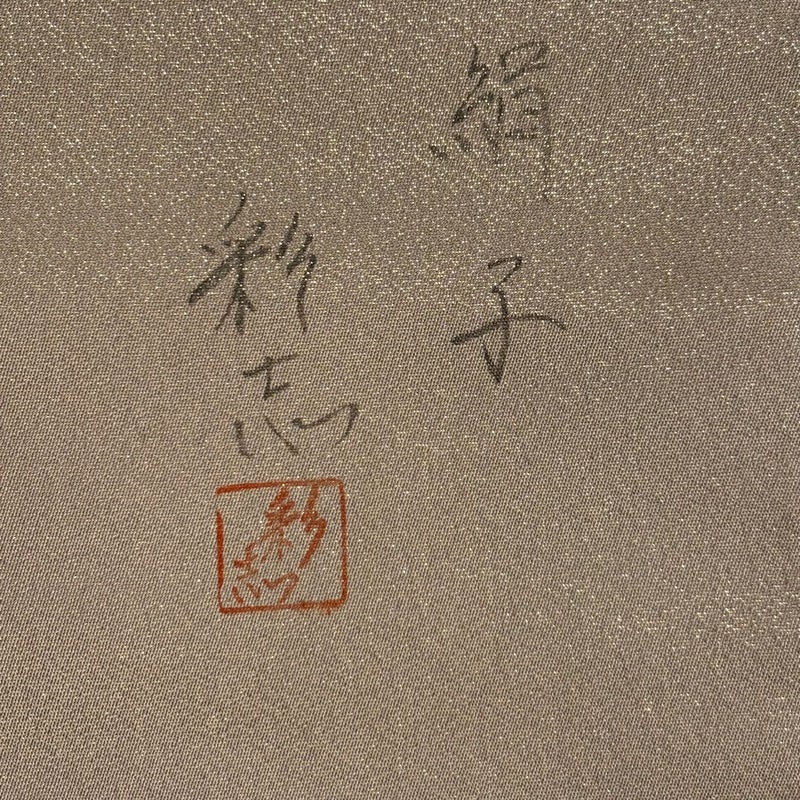 絹子
彩志
彩志